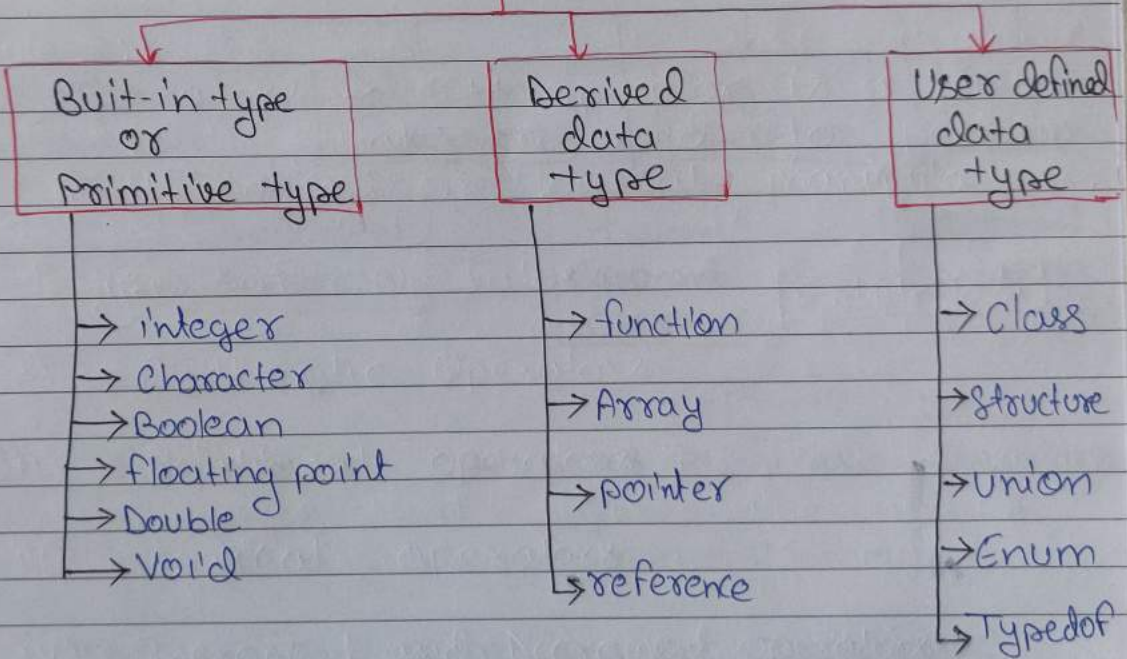 Buit-in type
or
Primitive type
integer
Character
Boolean
floating point
Double
Void
Derived
data
type
function
Array
pointer
reference
User defined
data
type
Class
Structure
Union
Enum
Typedof